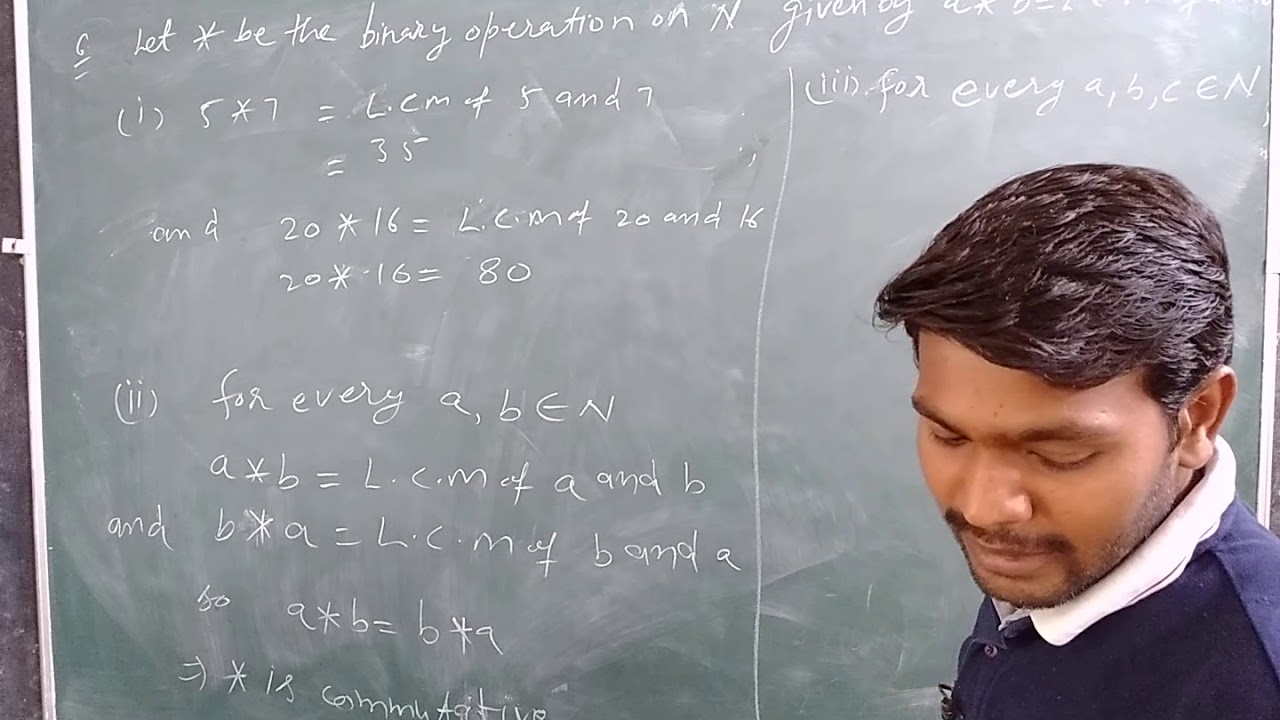 6 Let * be the binary operation on N given by a * b = L.C.M of a
(i) 5 * 7 = L.C.M of 5 and 7
= 35
and 20 * 16 = L.C.M of 20 and 16
20 * 16 = 80
(ii) for every a, b ∈ N
a * b = L.C.M of a and b
and b * a = L.C.M of b and a
so a * b = b * a
⇒ * is commutative
(iii) for every a, b, c ∈ N